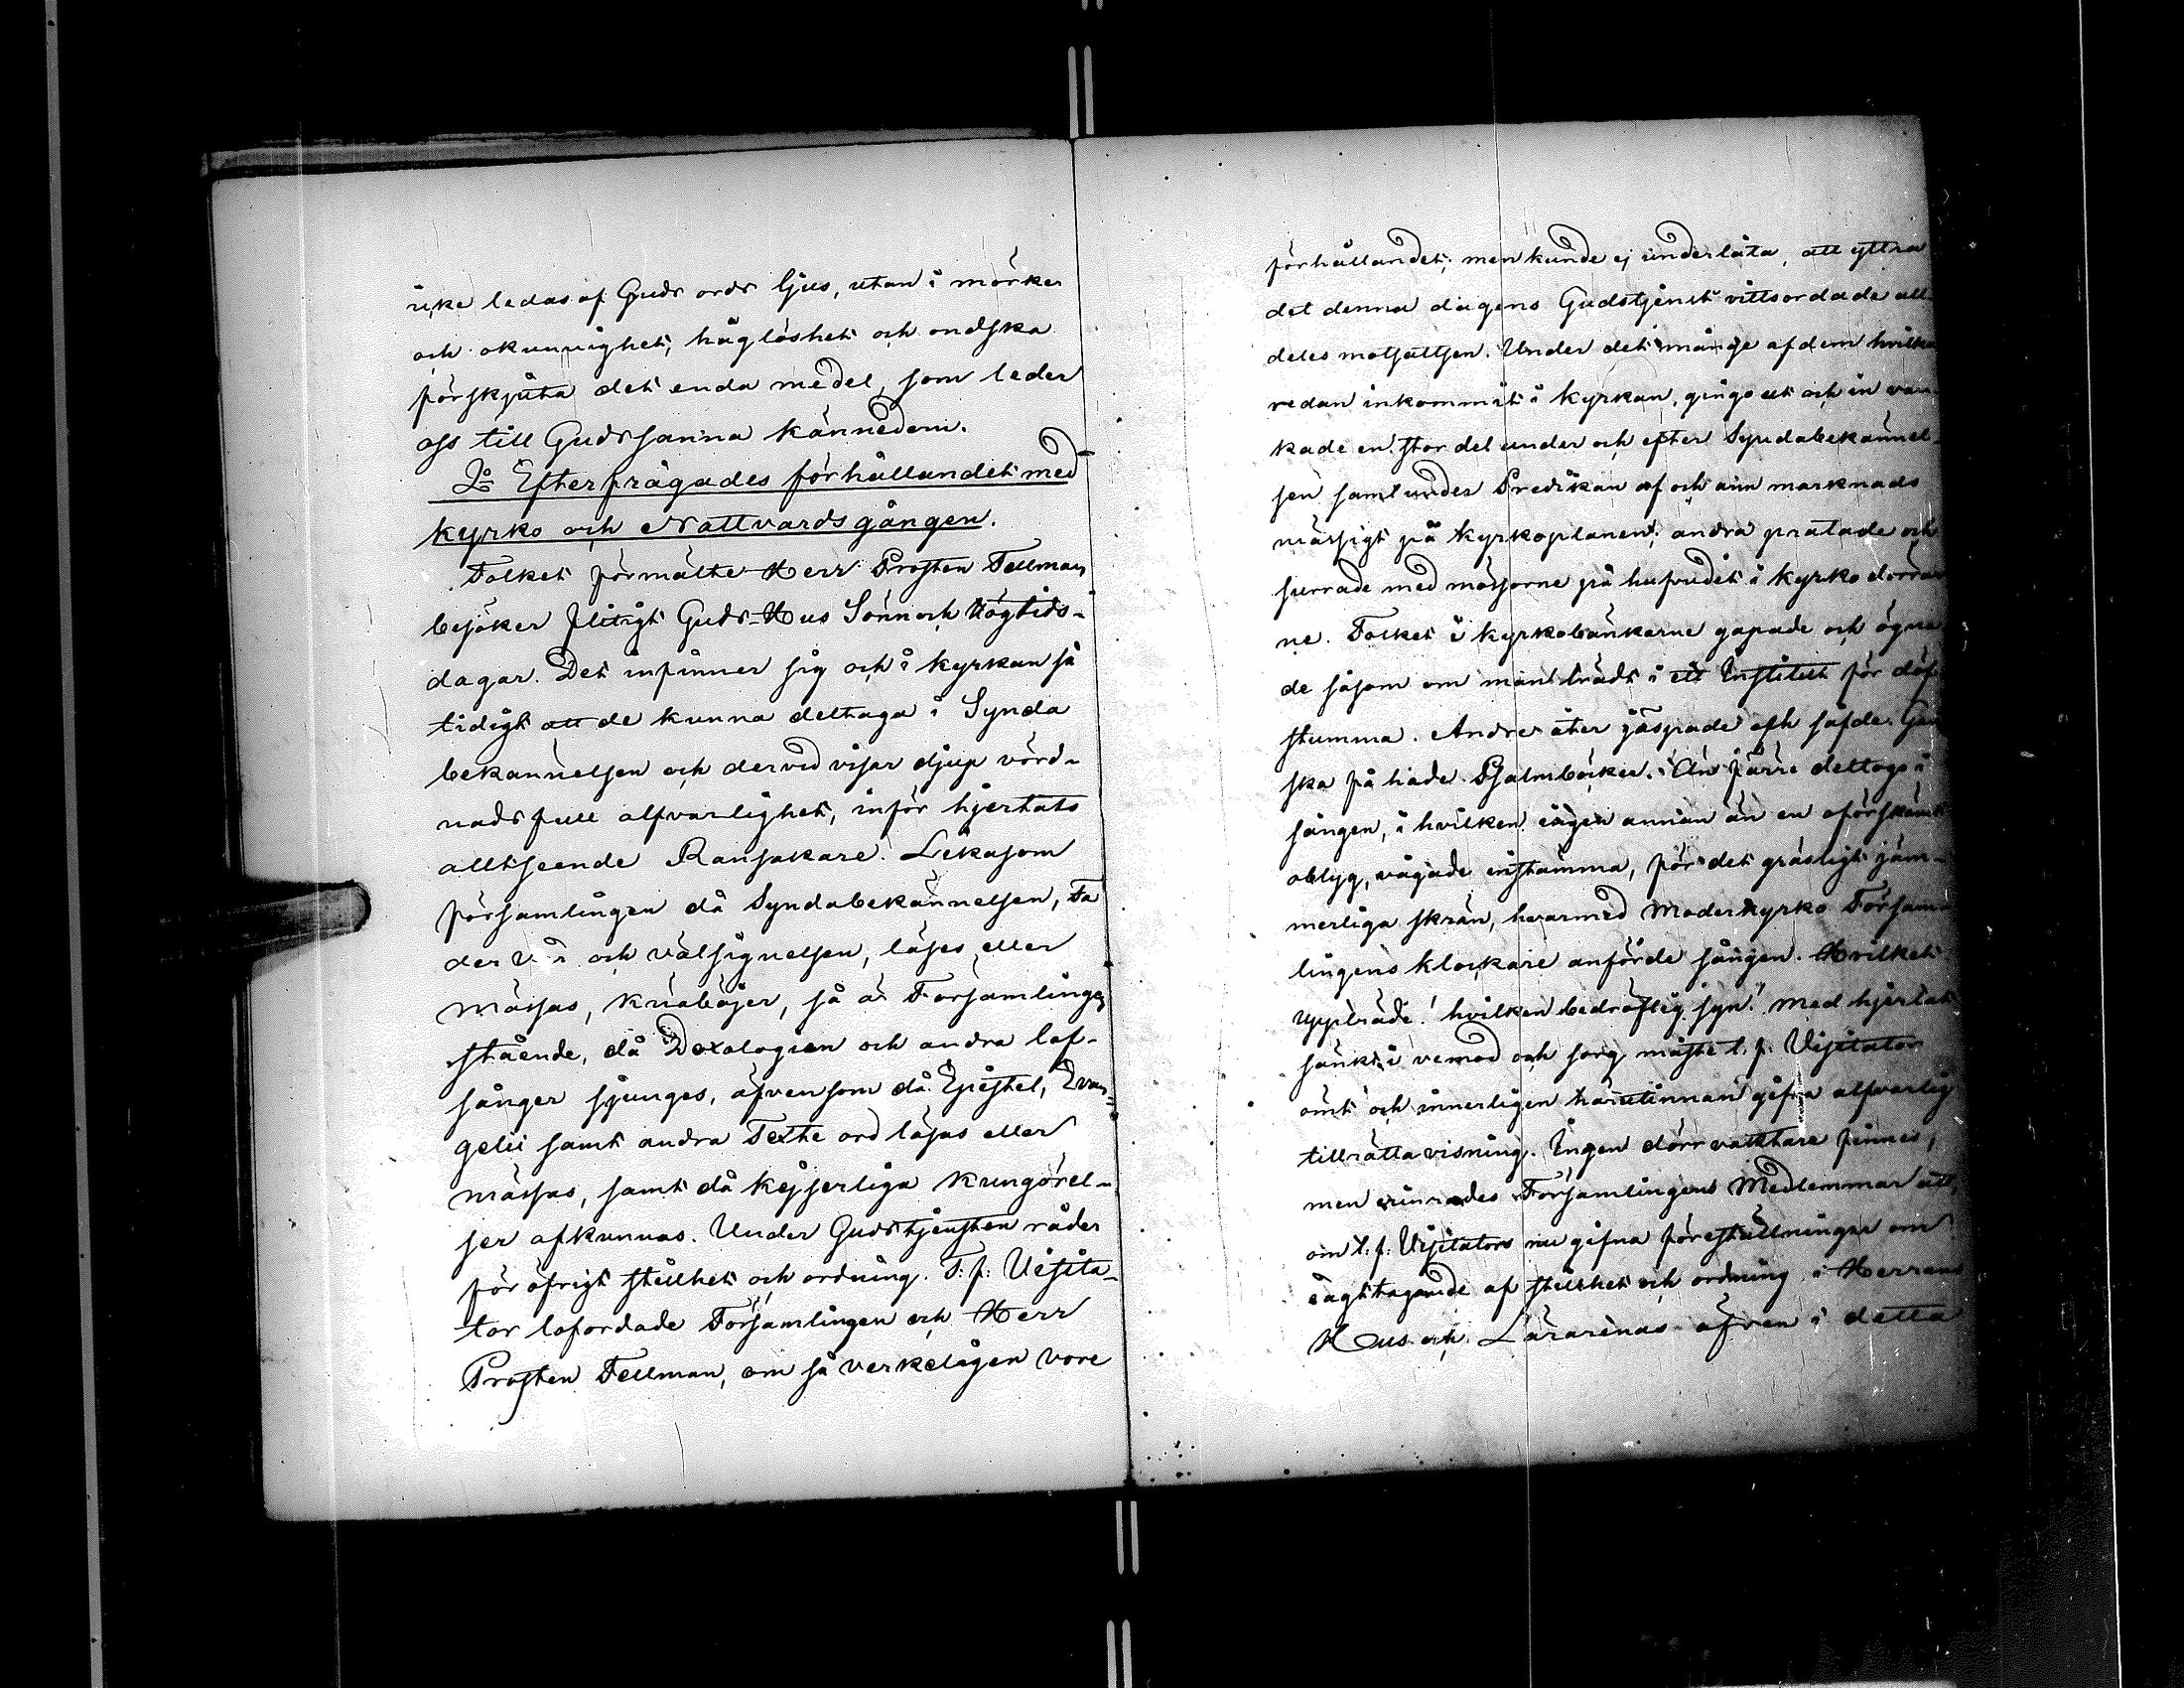 icke ledas af Guds ords ljus, utan i mörker
och okunnighet, håglöshet och ondska
förskjuta det enda medel, som leder
oss till Guds sanna kännedom.
2o Efterfrågades förhållandet med
kyrko och Nattvardsgången.
Folket förmälte Herr Prosten Fellman
besöker flitigt Guds-Hus Sönn och Högtids-
dagar. Det infinner sig och i kyrkan så
tidigt att de kunna deltaga i Synda
bekännelsen och dervid visar djup vörd-
nadsfull alfvarlighet, inför hjertats
alltseende Ransakare. Likasom
församlingen då Syndabekännelsen, Fa
der Vår och välsignelsen, läses eller
mässas, knäböjer, så är Församlingen
stående, då Doxologien och andra lof-
sånger sjunges, äfvensom då Epistel, Evan-
gelii samt andra Texte ord läsas eller
mässas, samt då Kejserliga Kungörel-
ser afkunnas. Under Gudstjensten råder
för öfrigt stillhet och ordning. T: f: Visita-
tor lofordade Församlingen och Herr
Prosten Fellman, om så verkeligen vore
förhållandet; men kunde ej underlåta, att yttra
det denna dagens Gudstjenst vittsordade all-
deles motsattsen. Under det månge af dem hvilka
redan inkommit i kyrkan, gingo ut och in van-
kade en stor del under och efter Syndabekännel-
sen samt under Predikan af och ann marknads
mässigt på Kyrkoplanen; andra pratade och
surrade med mössorne på hufvudet i kyrko dörrar
ne. Folket i kyrkobänkarne gapade och ögna
de såsom om man trädt i ett Institut för döf
stumma. Andre åter gäspade och såfde. Gan
ska få hade Psalmböcker. Än färre deltogo i
sången, i hvilken ingen annan än en oförskämt
oblyg, vågade instämma, för det gräsligt jäm-
merliga skrän, hvarmed Moderkyrko Försam-
lingens klockare anförde sången. Hvilket
uppträde! hvilken bedröflig syn! Med hjertat
sänkt i vemod och sorg måste t. f. Visitator
ömt och innerligen härutinnan gifva alfvarlig
tillrättavisning. Ingen dörrvaktare finnes,
men erinrades Församlingens Medlemmar att,
om t: f: Visitators nu gifna föreställningar om
iagttagande af stillhet och ordning i Herrans
Hus och Lärarenas äfven i detta